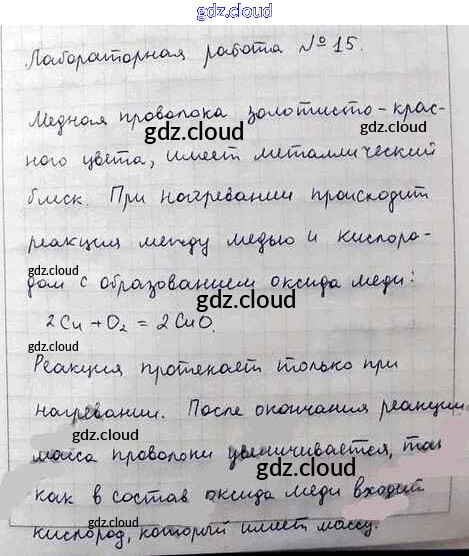 gdz.cloud
Лабораторная работа № 15.
Медная проволока золотисто-крас-
gdz.cloud gdz.cloud
ного цвета, имеет металлический
блеск. При нагревании происходит
gdz.cloud
реакция между медью и кислоро-
gdz.cloud
дом с образованием оксида меди:
gdz.cloud
2Cu + O₂ = 2CuO.
gdz.cloud
Реакция протекает только при
gdz.cloud
нагревании. После окончания реакции
gdz.cloud
масса проволоки увеличивается, так
gdz.cloud
как в состав оксида меди входит
gdz.cloud
кислород, который имеет массу.